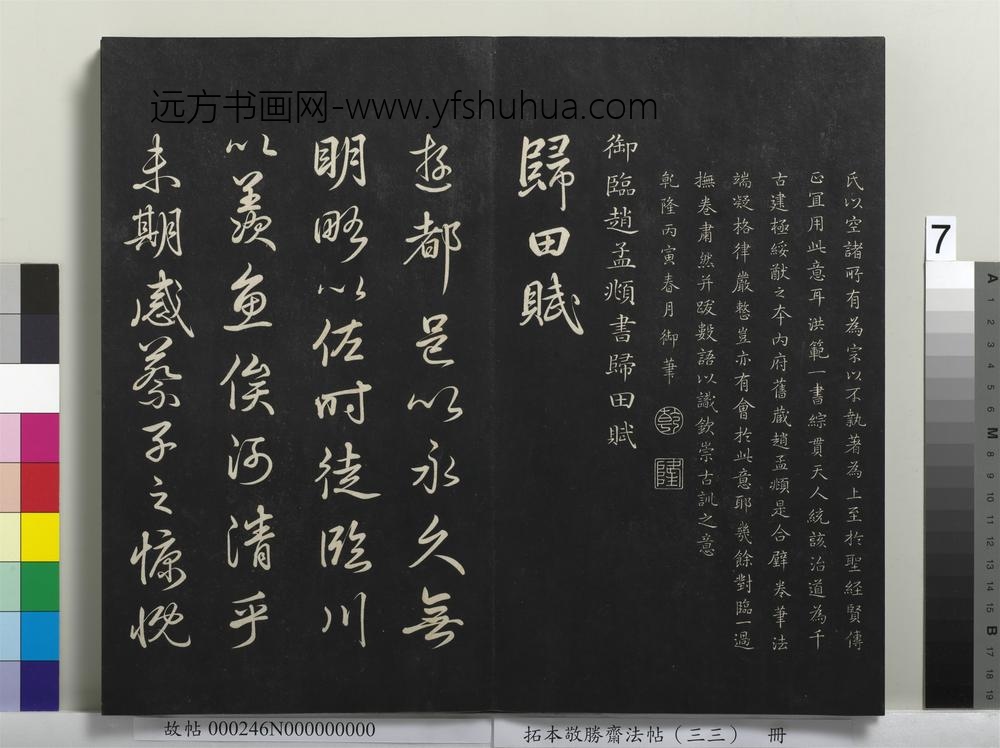 远方书画网-www.yfshuhua.com
氏以空諸所有為宗以不執著為上至於聖經賢傳
正宜用此意耳洪範一書綜貫天人統該治道為千
古建極綏猷之本內府舊藏趙孟頫是合璧卷筆法
端凝格律嚴整豈亦有會於此意耶幾餘對臨一過
撫卷肅然并跋數語以識欽崇古訓之意
乾隆丙寅春月御筆
乾
隆
御臨趙孟頫書歸田賦
歸田賦
遊都邑以永久無
明略以佐時徒臨川
以羨魚俟河清乎
未期感蔡子之慷慨
故帖 000246N000000000
拓本敬勝齋法帖（三三） 冊
7
A
1
2
3
4
5
6
M
8
9
10
11
12
13
14
15
B
17
18
19